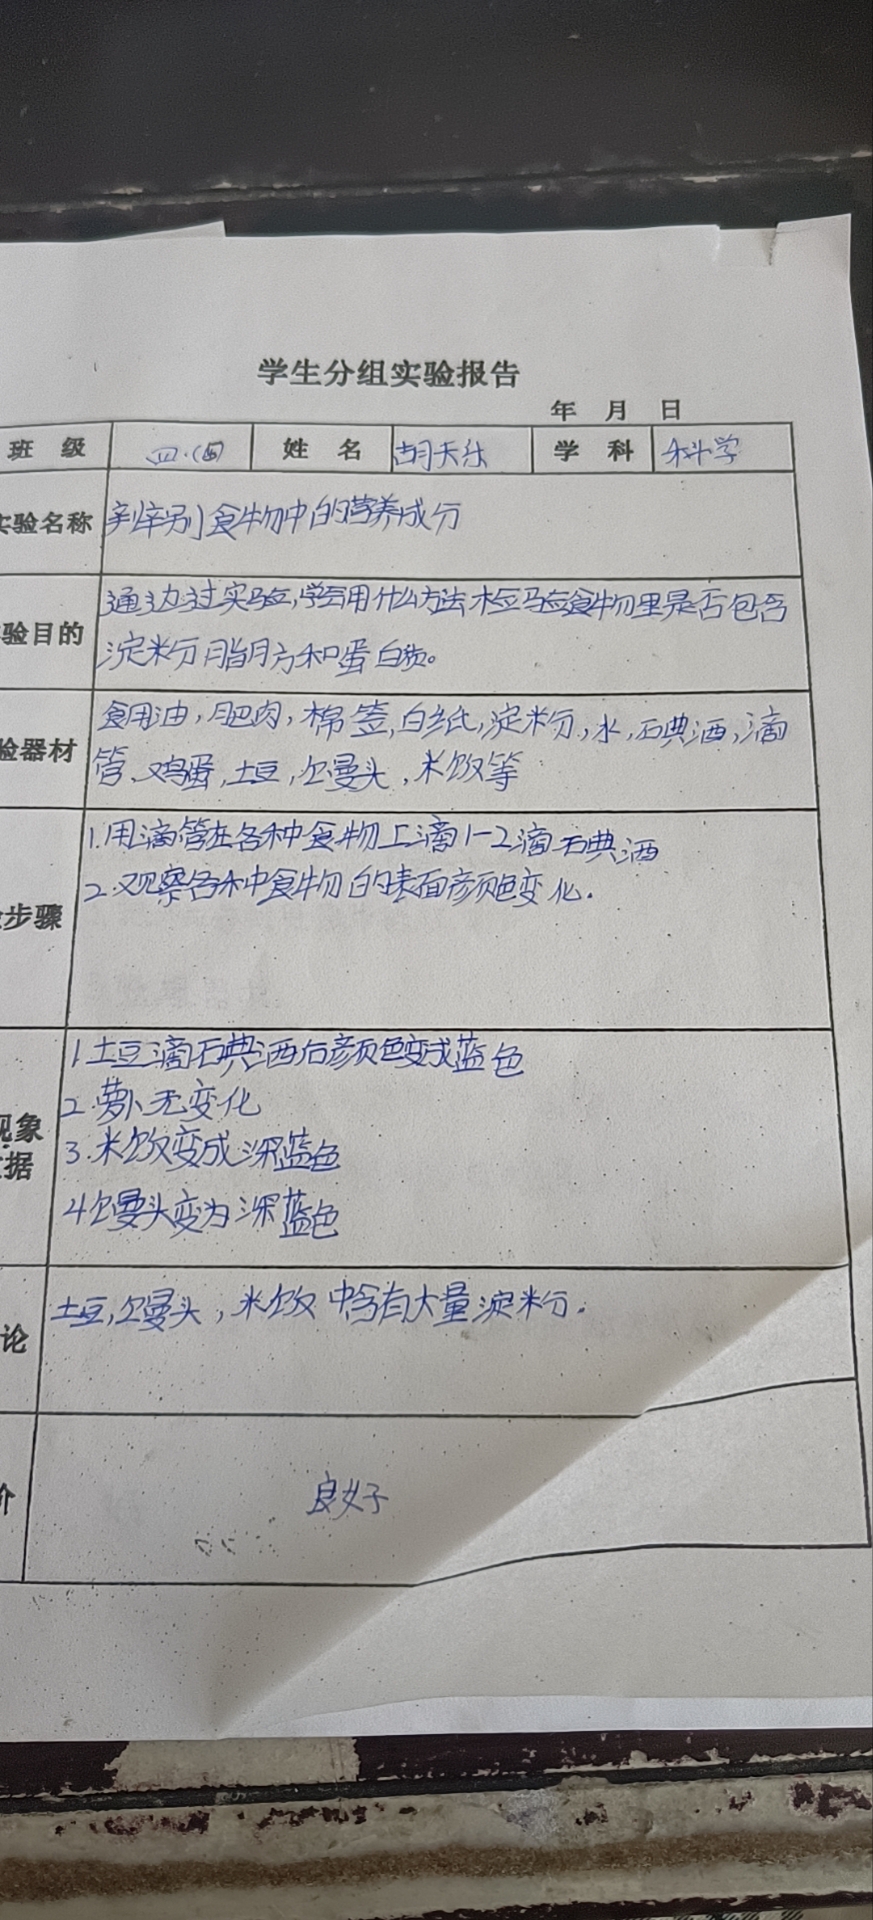 学生分组实验报告
年 月 日
班 级 四.(四) 姓 名 胡天乐 学 科 科学
实验名称 辨别食物中的营养成分
验目的 通过实验,学会用什么方法检验食物里是否包含
淀粉脂肪和蛋白质。
验器材 食用油,肥肉,棉签,白纸,淀粉,水,石典酒,滴
管、鸡蛋,土豆,馒头,米饭等
步骤 1.用滴管在各种食物上滴1-2滴石典酒
2.观察各种食物的表面颜色变化.
现象
据
1土豆滴石典酒后颜色变成蓝色
2.萝卜无变化
3.米饭变成深蓝色
4馒头变为深蓝色
论 土豆,馒头,米饭中含有大量淀粉.
价 良好